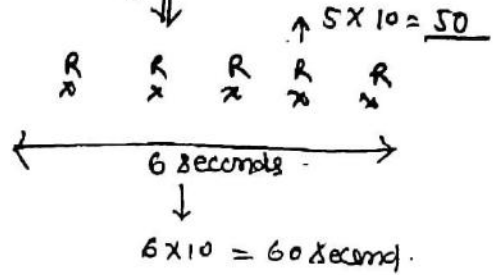 5 X 10 = 50
R R R R R
x x x x x
6 seconds
6 X 10 = 60 second.